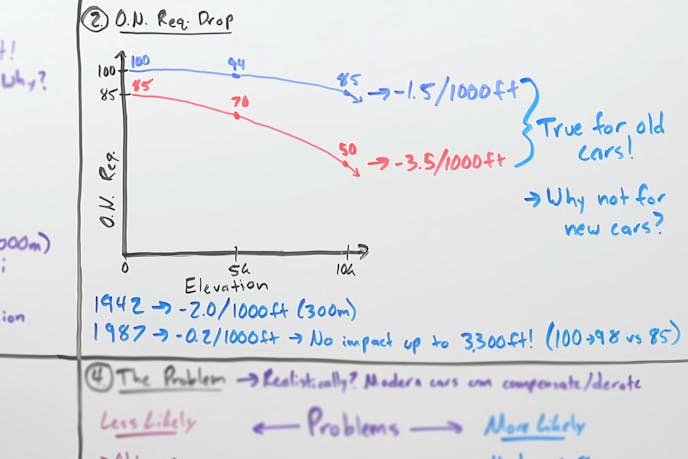 ② O.N. Req. Drop
t!
Why?
100
94
85
100
85
85
70
50
→ -1.5/1000ft
→ -3.5/1000ft
True for old
cars!
→ Why not for
new cars?
O.N. Req.
0
5k
10k
Elevation
000m)
i
ion
1942 → -2.0/1000ft (300m)
1987 → -0.2/1000ft → No impact up to 3,300ft! (100→98 vs 85)
④ The Problem → Realistically? Modern cars can compensate/derate
Less Likely
← Problems →
More Likely